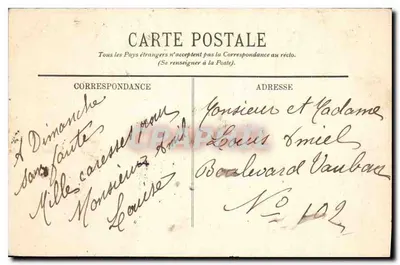 CARTE POSTALE
Tous les Pays étrangers n'acceptent pas la Correspondance au recto.
(Se renseigner à la Poste).
CORRESPONDANCE
A Dimanche
sans faute
Mille caresses pour
Monsieur Amiel
Louise
ADRESSE
Monsieur et Madame
Louis Amiel
Boulevard Vauban
No 102